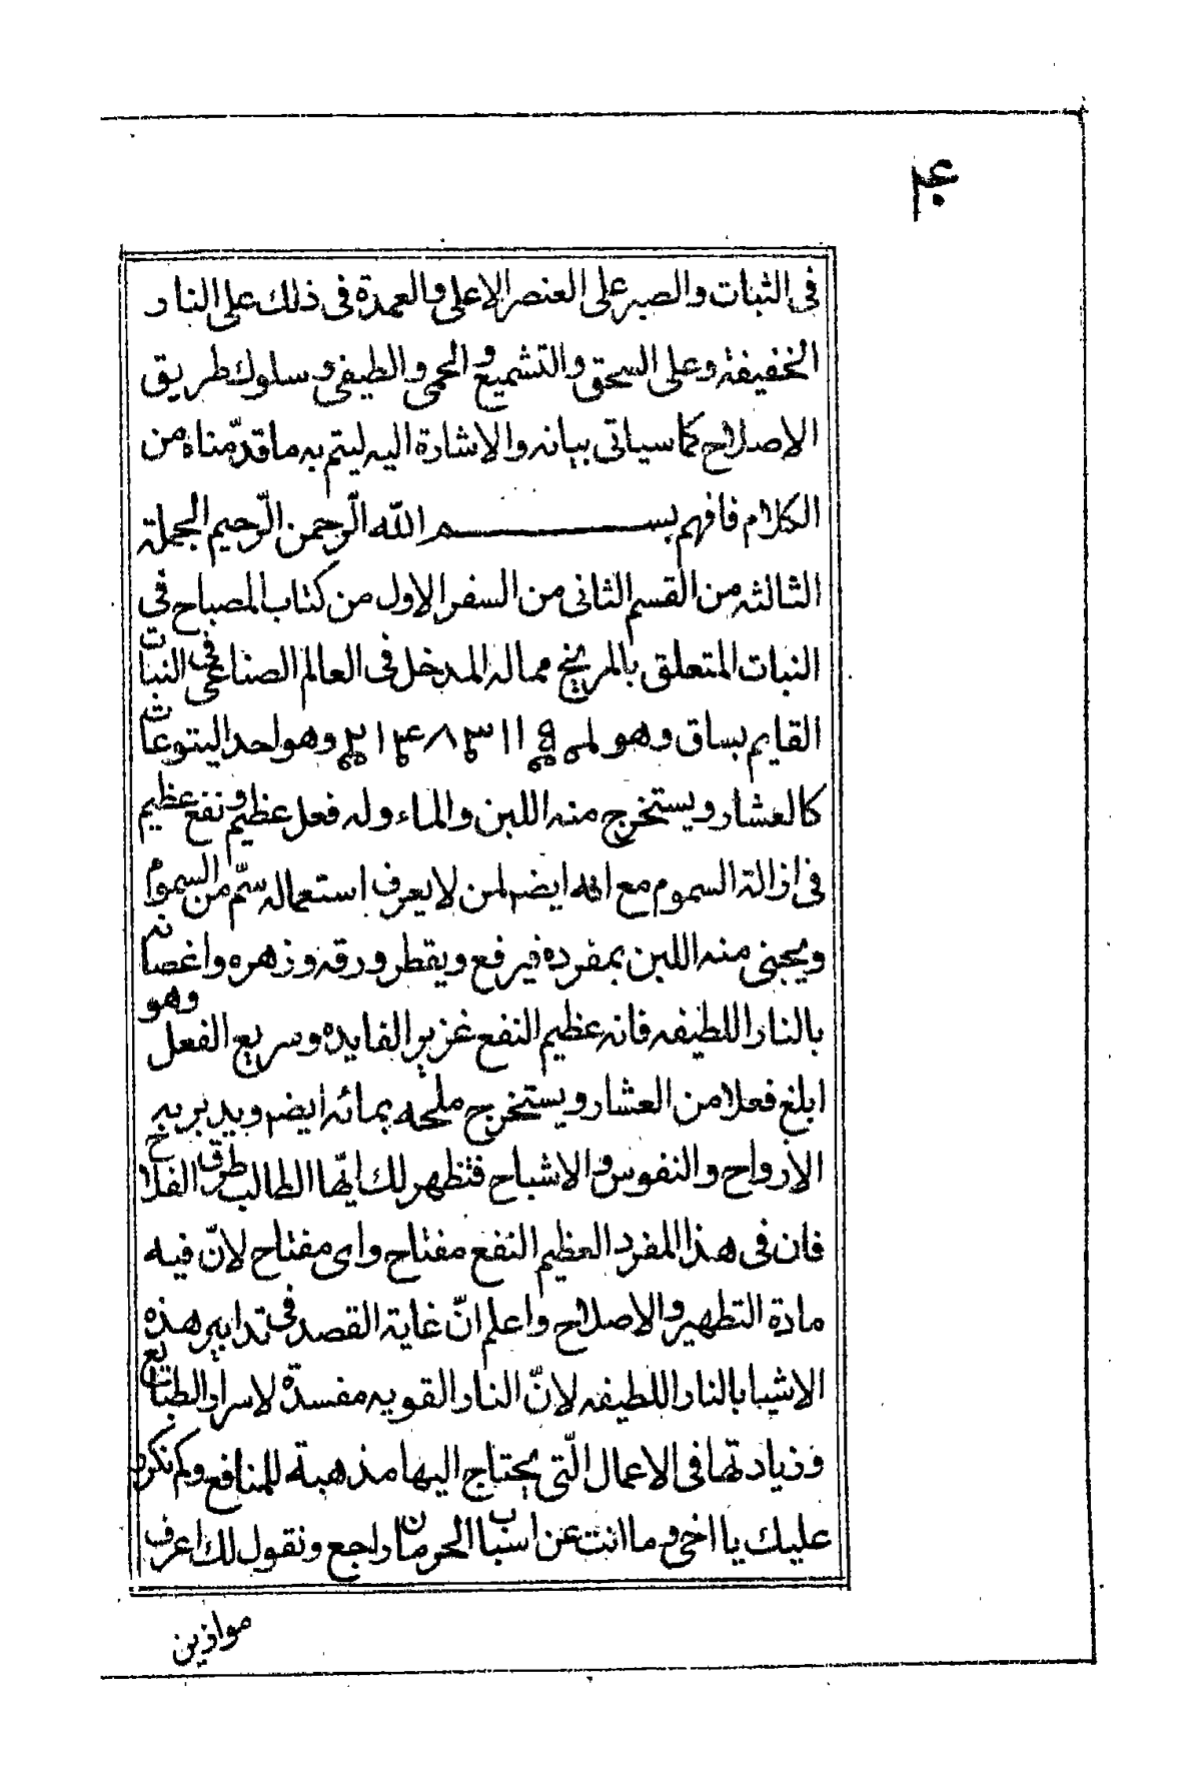 في الثبات والصبر على العنصر الاعلى والعمدة في ذلك على النار
الخفيفة وعلى السحق والتشميع والحمى والطيفى وسلوك طريق
الاصلاح كما سياتى بيانه والاشارة اليه ليتم به ما قدّمناه من
الكلام فافهم بسم الله الرّحمن الرّحيم الجملة
الثالثه من القسم الثانى من السفر الاول من كتاب المصباح في
النبات المتعلق بالمريخ مما له المدخل في العالم الصناعى في النبات
القايم بساق وهو وهو احد اليتوعات
كالعشار ويستخرج منه اللبن والماء وله فعل عظيم ونفع عظيم
في ازالة السموم مع انه ايضا لمن لا يعرف استعماله سمّ من السموم
ويجنى منه اللبن بمفرده فيرفع ويقطر ورقه وزهره واغصانه
بالنار اللطيفه فانه عظيم النفع غزير الفايده وسريع الفعل وهو
ابلغ فعلا من العشار ويستخرج ملحه بمائه ايضا ويدبر به
الارواح والنفوس والاشباح فتظهر لك ايّها الطالب طرق الفلاح
فان في هذا المفرد العظيم النفع مفتاح واى مفتاح لانّ فيه
مادة التطهير والاصلاح واعلم انّ غاية القصد في تدابير هذه
الاشيا بالنار اللطيفه لانّ النار القويه مفسدة لاسرار الطبايع
وزيادتها في الاعمال الّتى يحتاج اليها مذهبة للمنافع وكم نكرر
عليك يا اخى وما انت عن اسباب الحرمان راجع ونقول لك اعرف
موازين